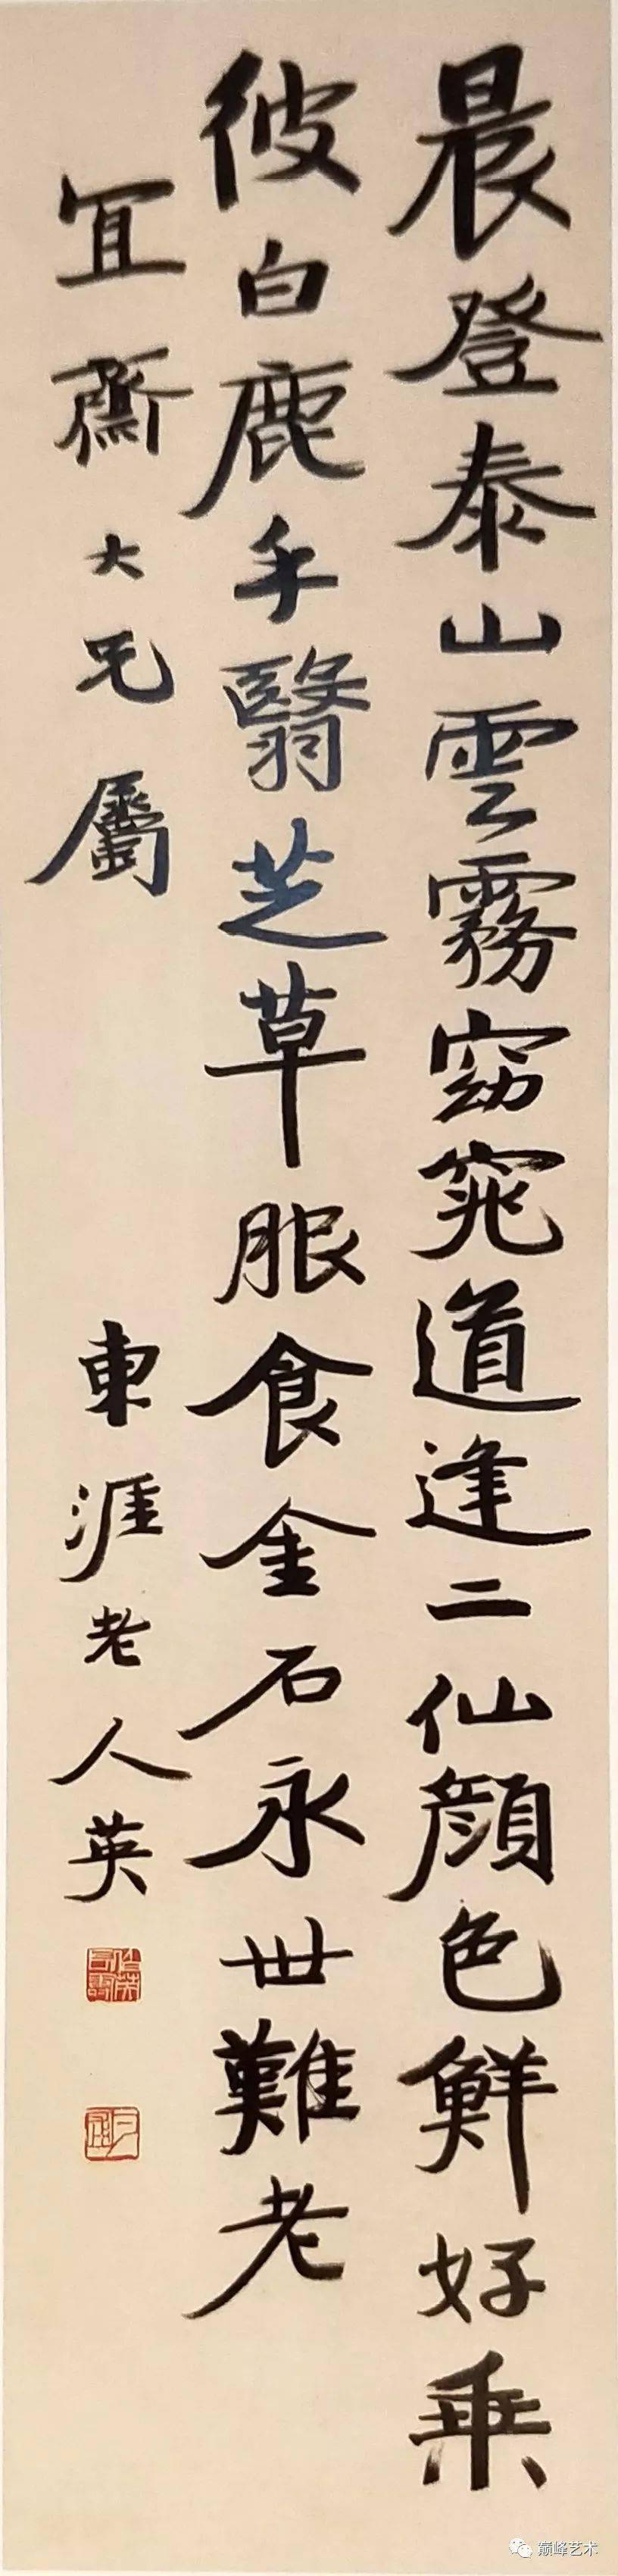 晨登泰山雲霧窈窕道逢二仙顏色鮮好乘
彼白鹿手翳芝草服食金石永世難老
宜齋大兄屬
東涯老人英
巅峰艺术